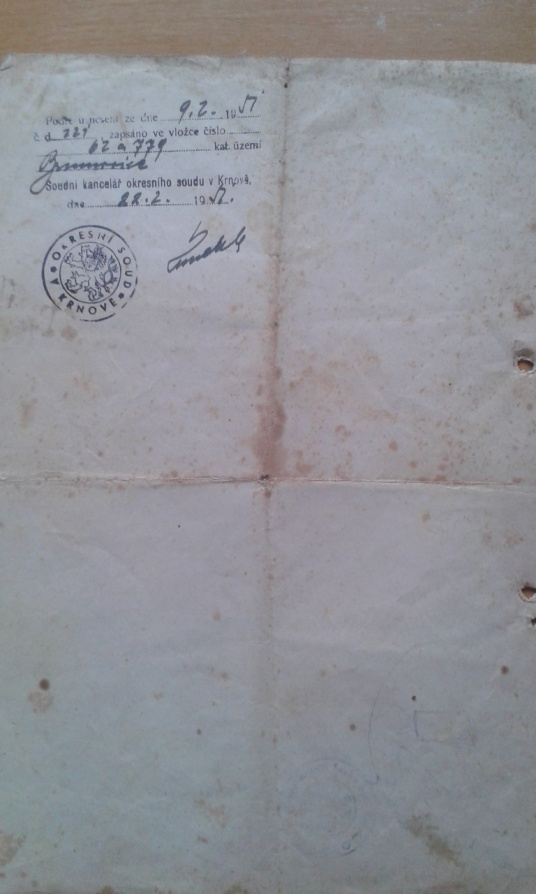 Podle usnesení ze dne 9.2. 1951
č d 221, zapsáno ve vložce číslo
62 a 779 kat. území
Soudní kancelář okresního soudu v Krnově,
dne 22.2. 1951.
OKRESNÍ SOUD
V KRNOVĚ